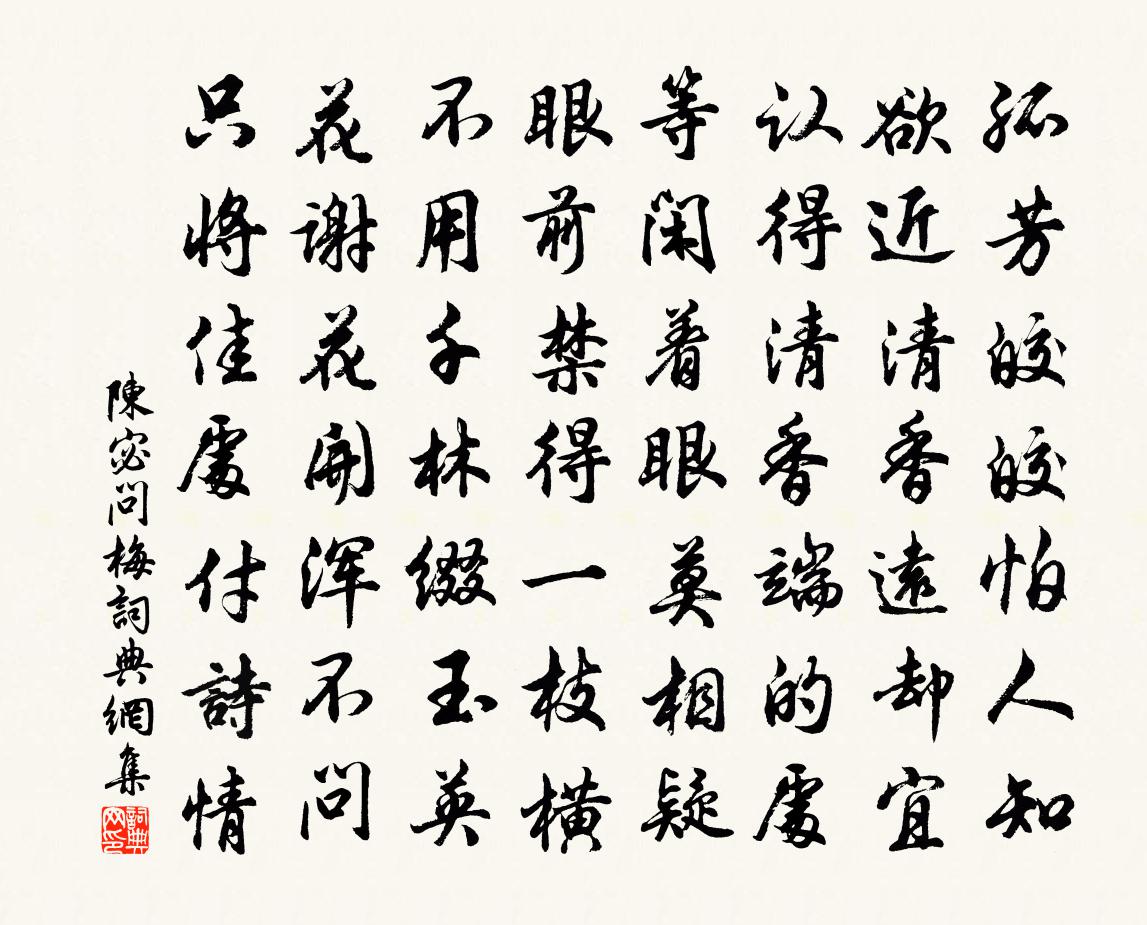 孤芳皎皎怕人知
欲近清香遠却宜
认得清香端的處
等闲着眼莫相疑
眼前禁得一枝横
不用千林缀玉英
花謝花開渾不問
只將佳處付詩情
陳宓問梅詞典網集
詞典网印